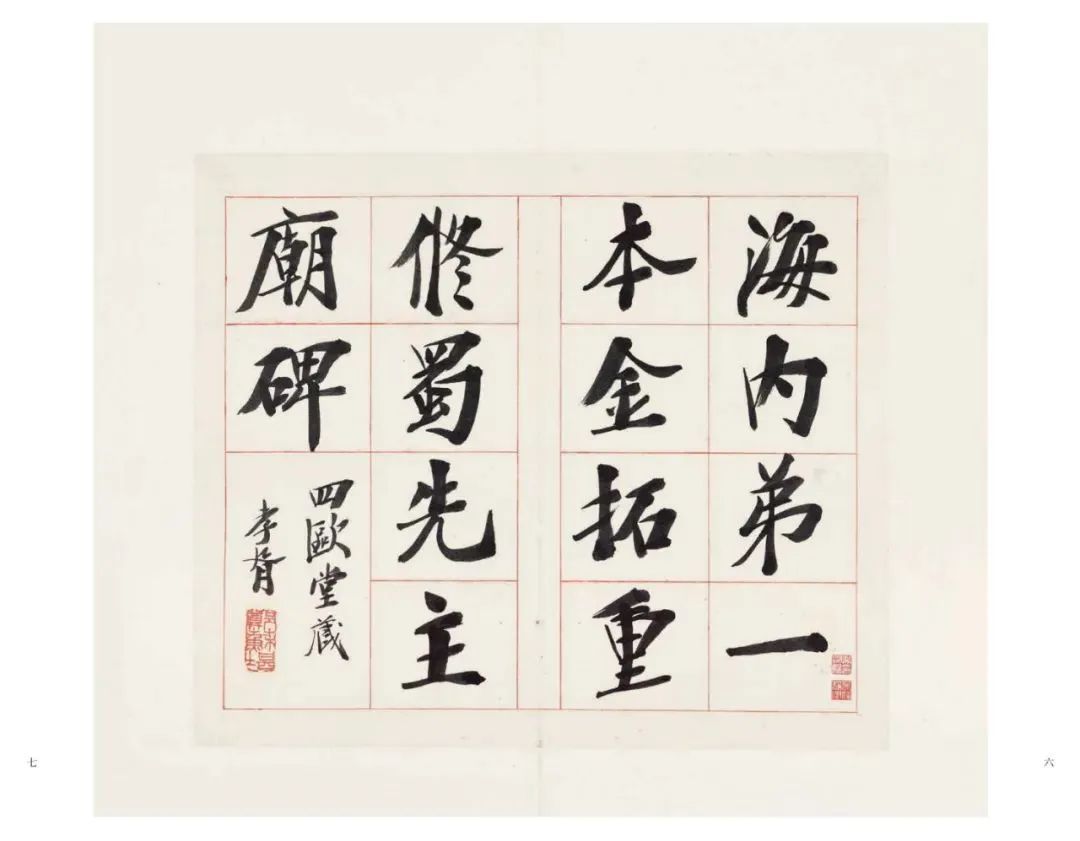 海内弟一
本金拓重
脩蜀先主
廟碑
四歐堂藏
孝胥
六
七